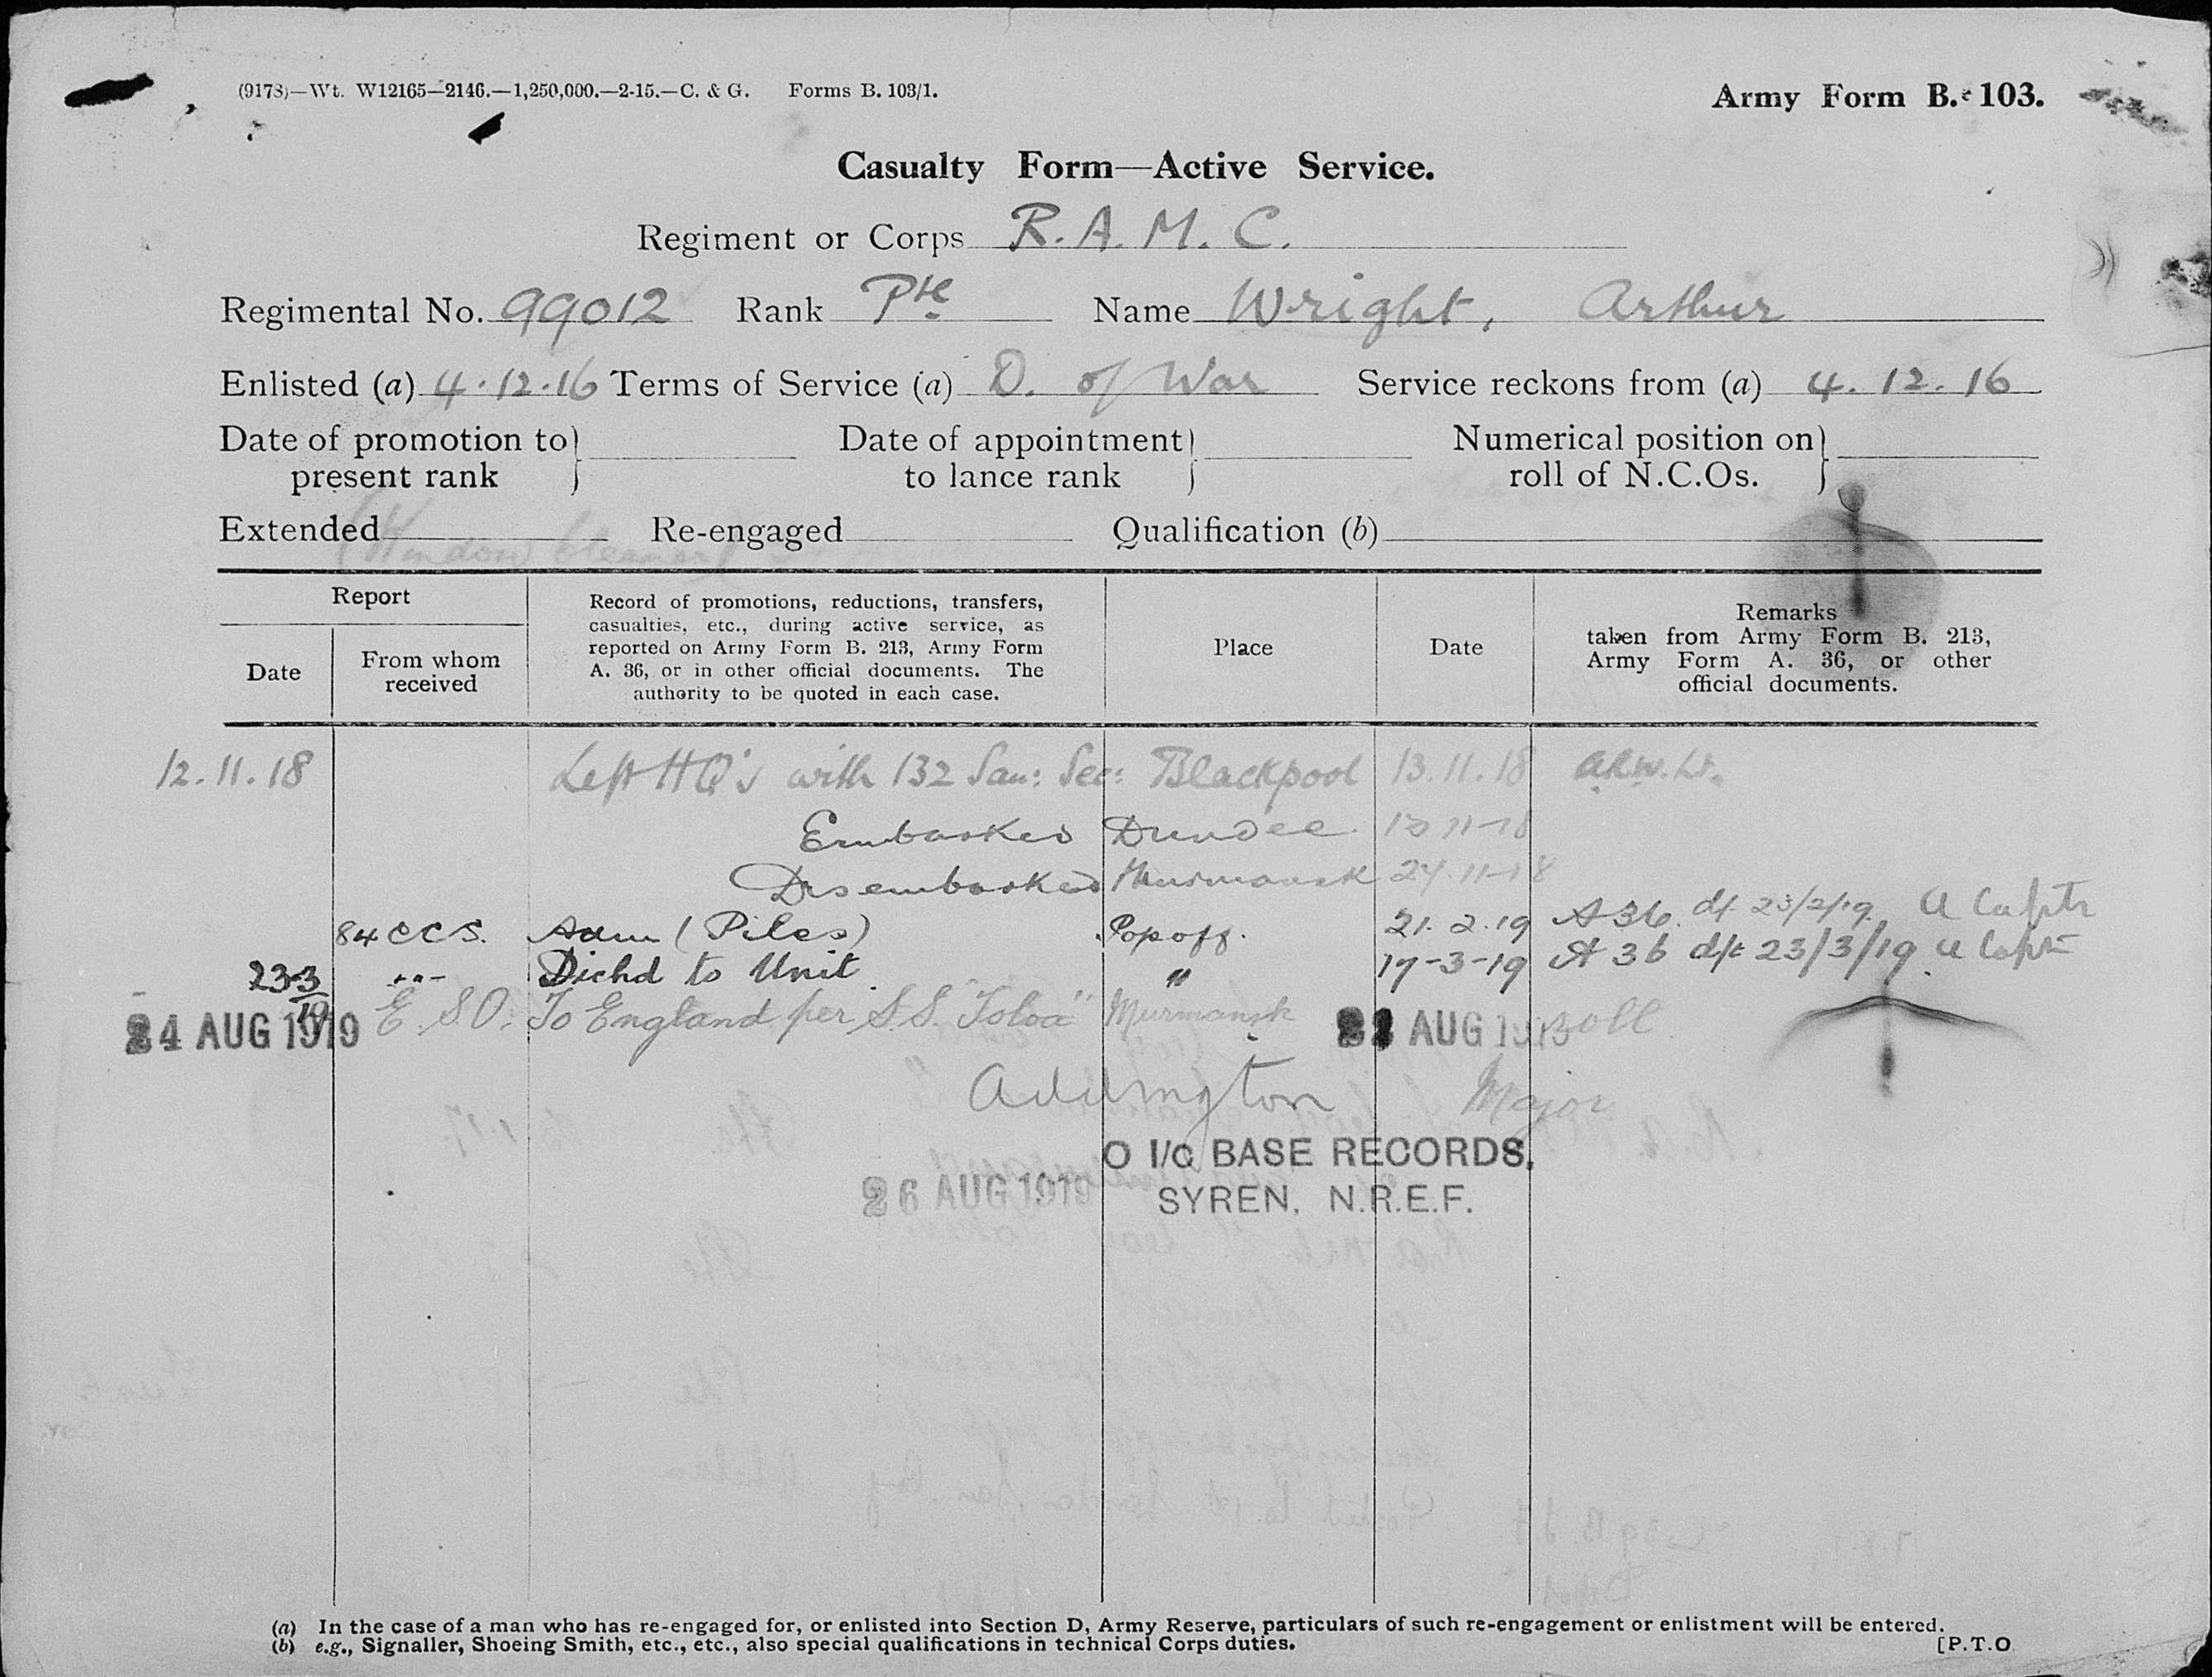 (9178)—Wt. W12165—2146.—1,250,000.—2-15.—C. & G. Forms B. 103/1.
Army Form B. 103.
Casualty Form—Active Service.
Regiment or Corps R. A. M. C.
Regimental No. 99012 Rank Pte Name Wright, Arthur
Enlisted (a) 4.12.16 Terms of Service (a) D. of War Service reckons from (a) 4. 12. 16
Date of promotion to present rank
Date of appointment to lance rank
Numerical position on roll of N.C.Os.
Extended Re-engaged Qualification (b)
(Window Cleaner)
Report
Date
From whom received
Record of promotions, reductions, transfers,
casualties, etc., during active service, as
reported on Army Form B. 213, Army Form
A. 36, or in other official documents. The
authority to be quoted in each case.
Place
Date
Remarks
taken from Army Form B. 213,
Army Form A. 36, or other
official documents.
12.11.18 Left HQ's with 132 San: Sec: Blackpool 13.11.18
Embarked Dundee
Disembarked Murmansk
84 CCS. Adm (Piles) Popoff. 21. 2. 19 A 36. d/-
23-3/19 Dichd to Unit. " 17-3-19 A 36 d/t 23/3/19
24 AUG 1919 E.S.O. To England per S.S. "Toloa" Murmansk AUG 1919 roll
Addington Major
O I/C BASE RECORDS,
26 AUG 1919 SYREN, N.R.E.F.
(a) In the case of a man who has re-engaged for, or enlisted into Section D, Army Reserve, particulars of such re-engagement or enlistment will be entered.
(b) e.g., Signaller, Shoeing Smith, etc., etc., also special qualifications in technical Corps duties. [P.T.O